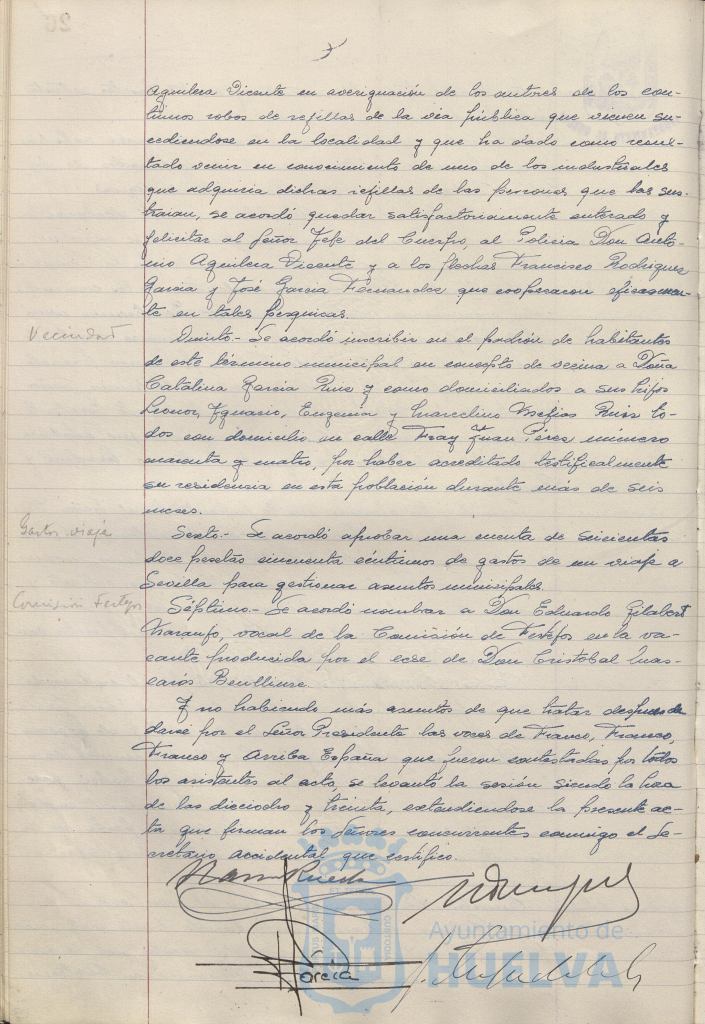 Aguilera Vicente en averiguación de los autores de los con-
tinuos robos de rejillas de la vía pública que vienen su-
cediendose en la localidad y que ha dado como resul-
tado venir en conocimiento de uno de los industriales
que adquiria dichas rejillas de las personas que las sus-
traian, se acordó quedar satisfactoriamente enterado y
felicitar al Señor Jefe del Cuerpo, al Policia Don Anto-
nio Aguilera Vicente y a los flechas Francisco Rodriguez
Garcia y José Garcia Fernandez que cooperaron eficazmen-
te en tales pesquisas.
Vecindad
Quinto.- Se acordó inscribir en el padrón de habitantes
de este término municipal en concepto de vecina a Doña
Catalina Garcia Ruiz y como domiciliados a sus hijos
Leonor, Ygnacio, Eugenia y Marcelino Ruiz to-
dos con domicilio en calle Fray Juan Pérez número
cuarenta y cuatro, por haber acreditado testificalmente
su residencia en esta población durante más de seis
meses.
Gastos viaje
Sexto.- Se acordó aprobar una cuenta de seiscientas
doce pesetas cincuenta céntimos de gastos de un viaje a
Sevilla para gestionar asuntos municipales.
Comisión Festejos
Séptimo.- Se acordó nombrar a Don Eduardo Gilabert
Naranjo, vocal de la Comisión de Festejos en la va-
cante producida por el cese de Don Cristobal Mas-
carós Benlliure.
Y no habiendo más asuntos de que tratar despues de
darse por el Señor Presidente las voces de Franco, Franco,
Franco y Arriba España que fueron contestadas por todos
los asistentes al acto, se levantó la sesión siendo la hora
de las dieciocho y treinta, extendiendose la presente ac-
ta que firman los Señores concurrentes conmigo el Se-
cretario accidental que certifico.
Garcia
Ayuntamiento de
HUELVA